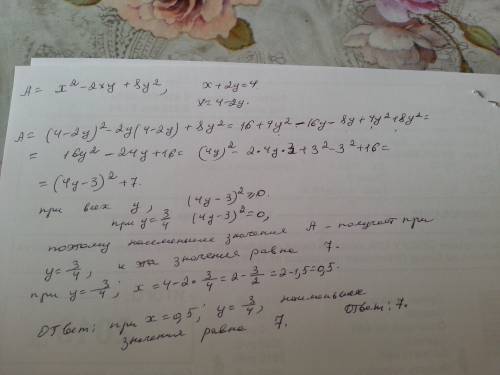 A = x² - 2xy + 8y²,   x + 2y = 4
x = 4 - 2y.
A = (4-2y)² - 2y(4-2y) + 8y² = 16 + 4y² - 16y - 8y + 4y² + 8y² =
= 16y² - 24y + 16 = (4y)² - 2·4y·3 + 3² - 3² + 16 =
= (4y-3)² + 7.
при всех y, (4y-3)² ≥ 0.
при y = 3/4 (4y-3)² = 0,
поэтому наименьшие значения A - получает при
y = 3/4, и эта значения равна 7.
при y = 3/4; x = 4 - 2·3/4 = 2 - 3/2 = 2 - 1,5 = 0,5.
Ответ: при x = 0,5; y = 3/4, наименьшее
значения равна 7. Ответ: 7.